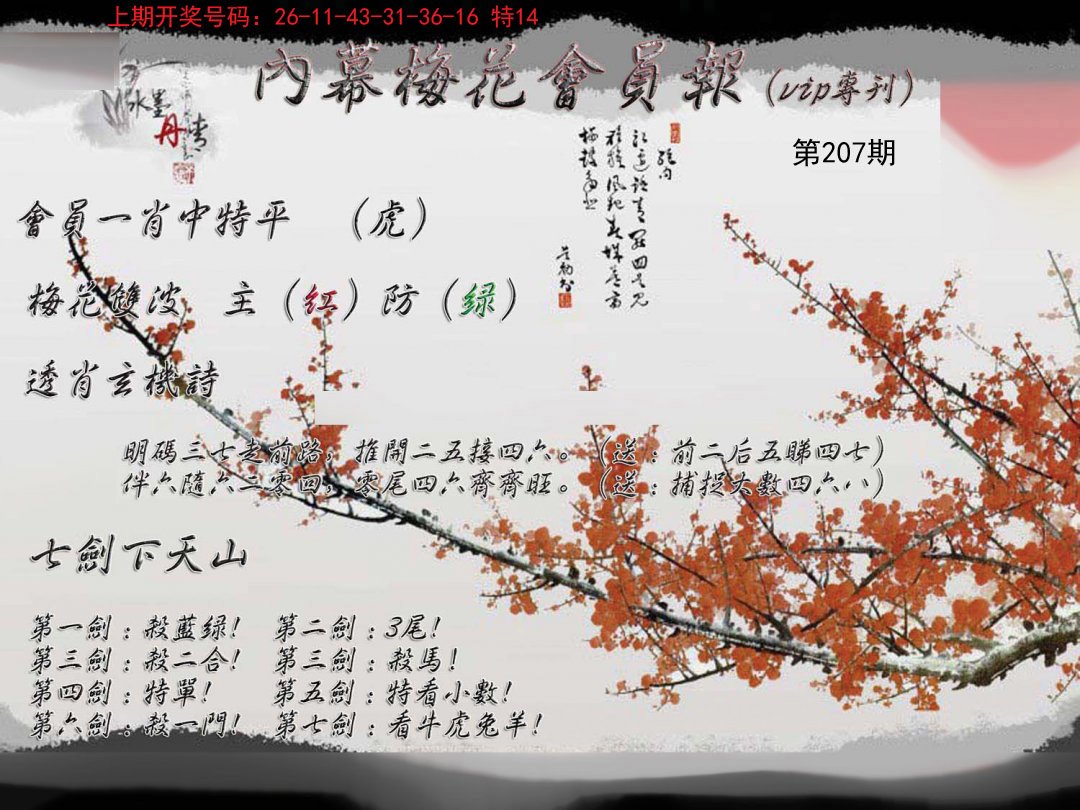 上期开奖号码：26-11-43-31-36-16 特14
內幕梅花會員報（vip專刊）
水墨
丹青
第207期
會員一肖中特平 （虎）
梅花雙波 主（红）防（绿）
透肖玄機詩
明碼三七走前路；推開二五接四六。（送：前二后五睇四七）
伴六隨六二零四；零尾四六齊齊旺。（送：捕捉大數四六八）
七劍下天山
第一劍：殺藍绿！ 第二劍：3尾！
第三劍：殺二合！ 第三劍：殺馬！
第四劍：特單！ 第五劍：特看小數！
第六劍：殺一門！ 第七劍：看牛虎兔羊！